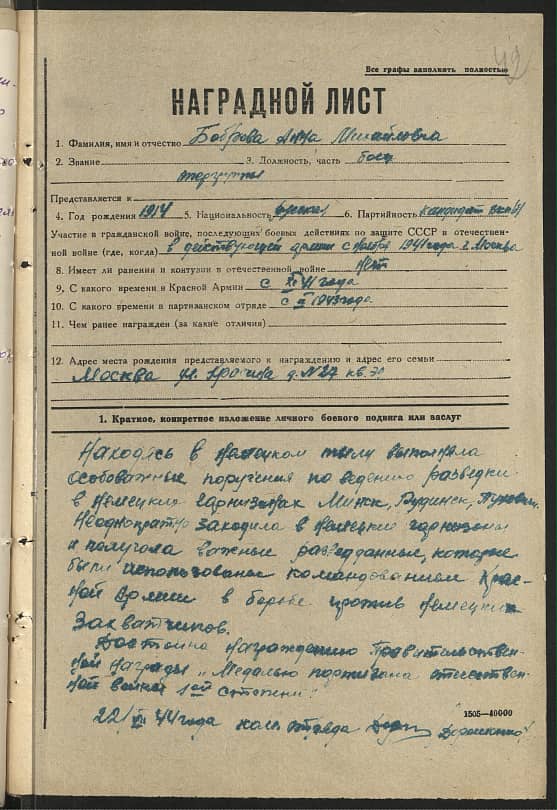 42
Все графы заполнять полностью
НАГРАДНОЙ ЛИСТ
1. Фамилия, имя и отчество Боброва Анна Михайловна
2. Звание 3. Должность, часть боец
Представляется к
4. Год рождения 1914 5. Национальность русская 6. Партийность кандидат ВКП(б)
Участие в гражданской войне, последующих боевых действиях по защите СССР в отечествен-
ной войне (где, когда) в действующей армии с ноября 1941 года г. Москва
8. Имест ли ранения и контузии в отечественной войне Нет
9. С какого времени в Красной Армии с XI 41 года
10. С какого времени в партизанском отряде с 1943 года
11. Чем ранее награжден (за какие отличия)
12. Адрес места рождения представляемого к награждению и адрес его семьи
Москва ул. д. №27 кв. 30
1. Краткое, конкретное изложение личного боевого подвига или заслуг
Находясь в немецком тылу выполняла
особоважные поручения по ведению разведки
в немецких гарнизонах Минск, Рудинск, Пухович.
Неоднократно заходила в немецкие гарнизоны
и получала важные разведданные, которые
были использованы командованием Крас-
ной Армии в борьбе против немецких
захватчиков.
Достойна награждению Правительствен-
ной награды „Медалью партизана отечествен-
ной войны 1ой степени".
1505—40000
22/VII 44 года ком отряда